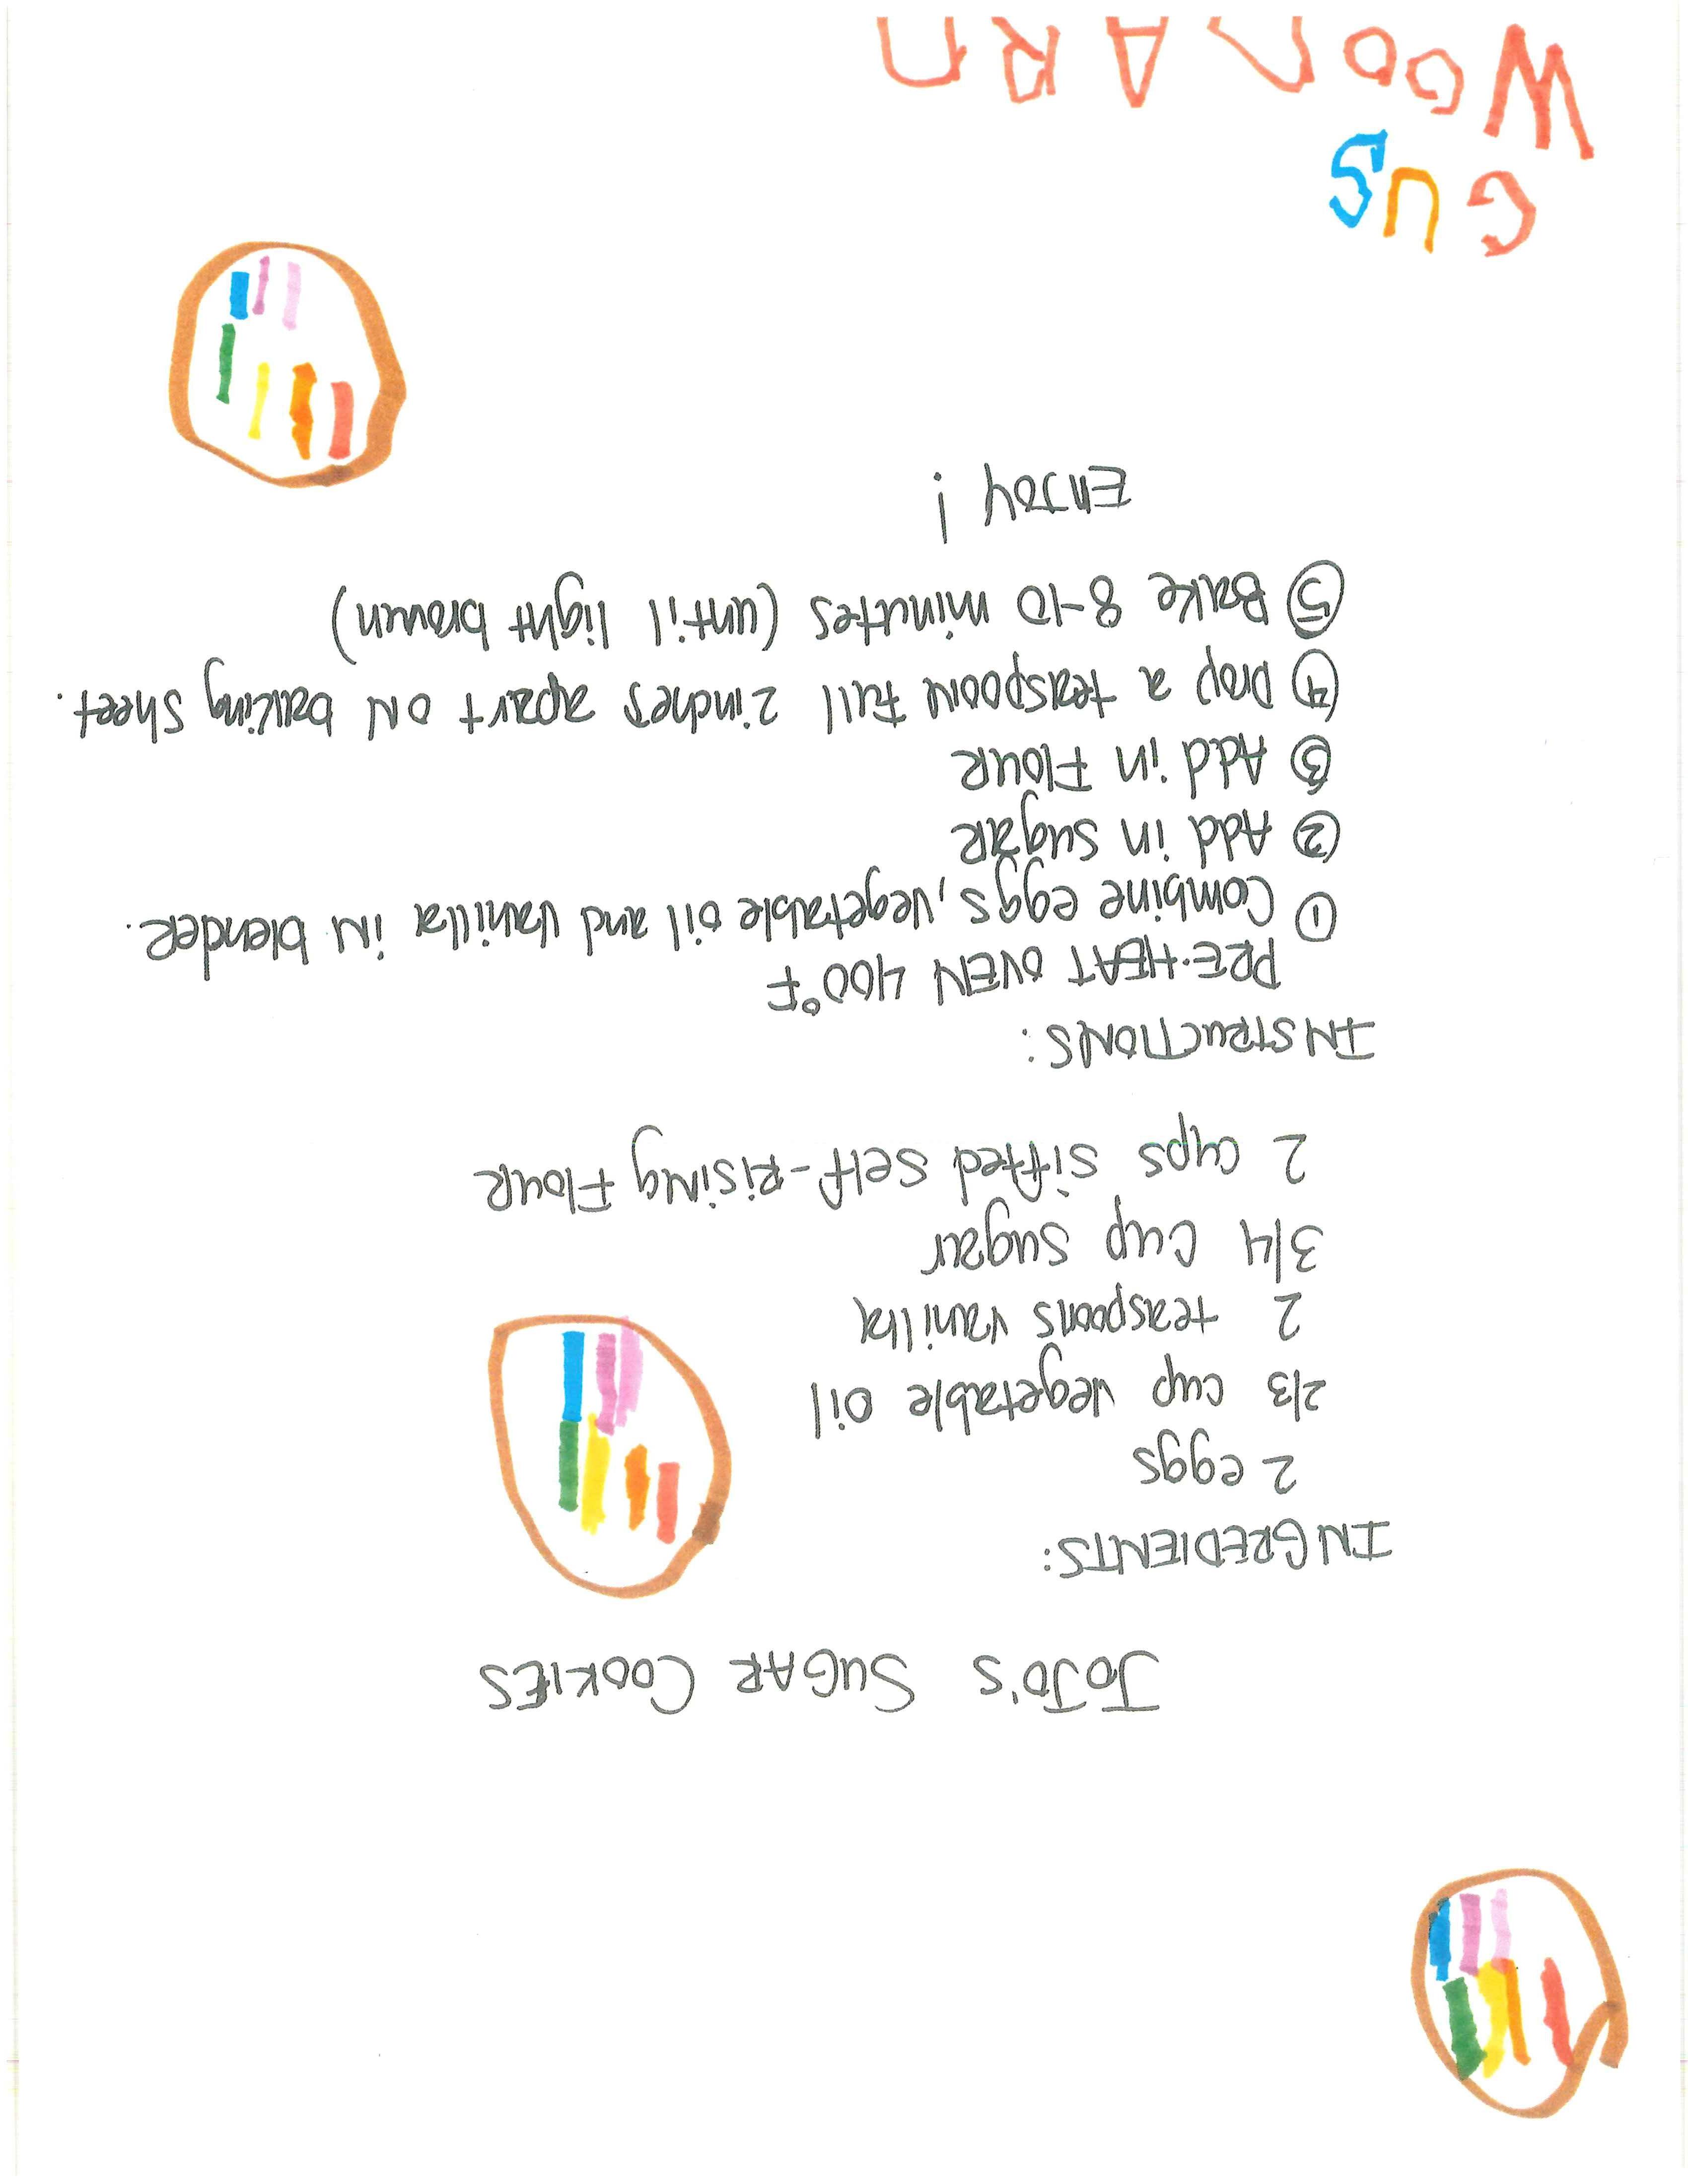 JoJo's Sugar Cookies
INGREDIENTS:
2 eggs
2/3 cup vegetable oil
2 teaspoons vanilla
3/4 cup sugar
2 cups sifted self-rising flour
INSTRUCTIONS:
PRE-HEAT OVEN 400°F
① Combine eggs, vegetable oil and vanilla in blender.
② Add in sugar
③ Add in Flour
④ Drop a teaspoon full 2 inches apart on baking sheet.
⑤ Bake 8-10 minutes (until light brown)
ENJOY!
GUS